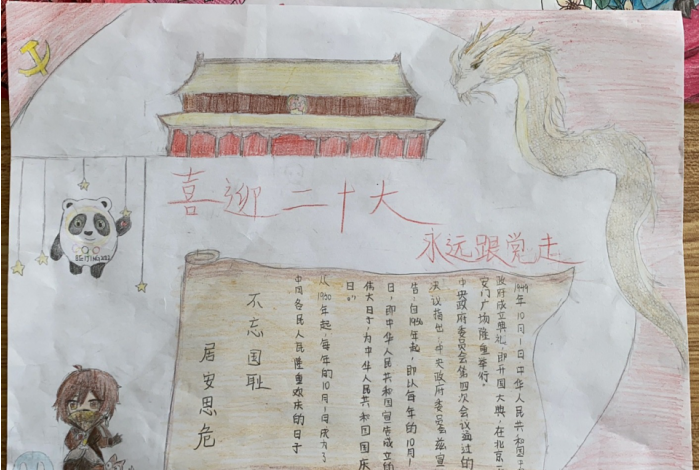 喜迎二十大
永远跟党走
BEIJING 2022
1949年10月1日中华人民共和国
政府成立典礼,即开国大典,在北京
安门广场隆重举行。
中央政府委员会第四次会议通过的
决议指出:中央政府委员会兹宣
告:自1950年起,即从每年的10月1
日,即中华人民共和国宣告成立的
伟大日子,为中华人民共和国国庆
日。
从1950年起,每年的10月1日成为了
中国各民人民隆重欢庆的日子
不忘国耻
居安思危